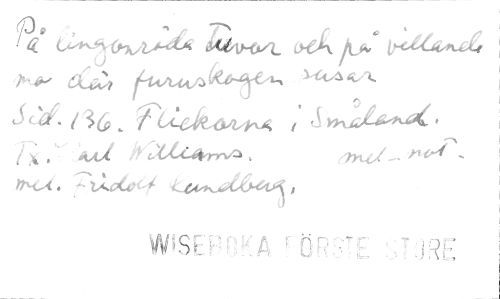 På lingonröda tuvor och på villande
mo där furuskogen susar
Sid. 136. Flickorna i Småland.
Tx. Karl Williams. mel-not-
mel. Fridolf Lundberg.
WISEBOKA FÖRSTE STORE